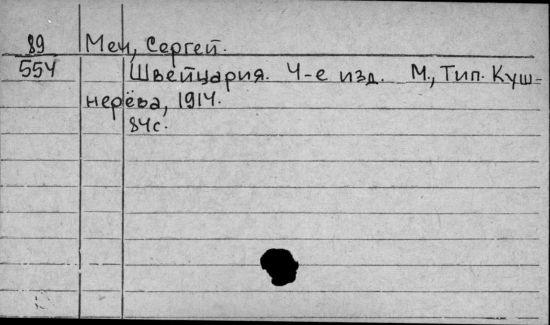 89 Меч, Сергей.
554 Швейцария. 4-е изд. М., Тип. Куш-
нерёва, 1914.
84с.